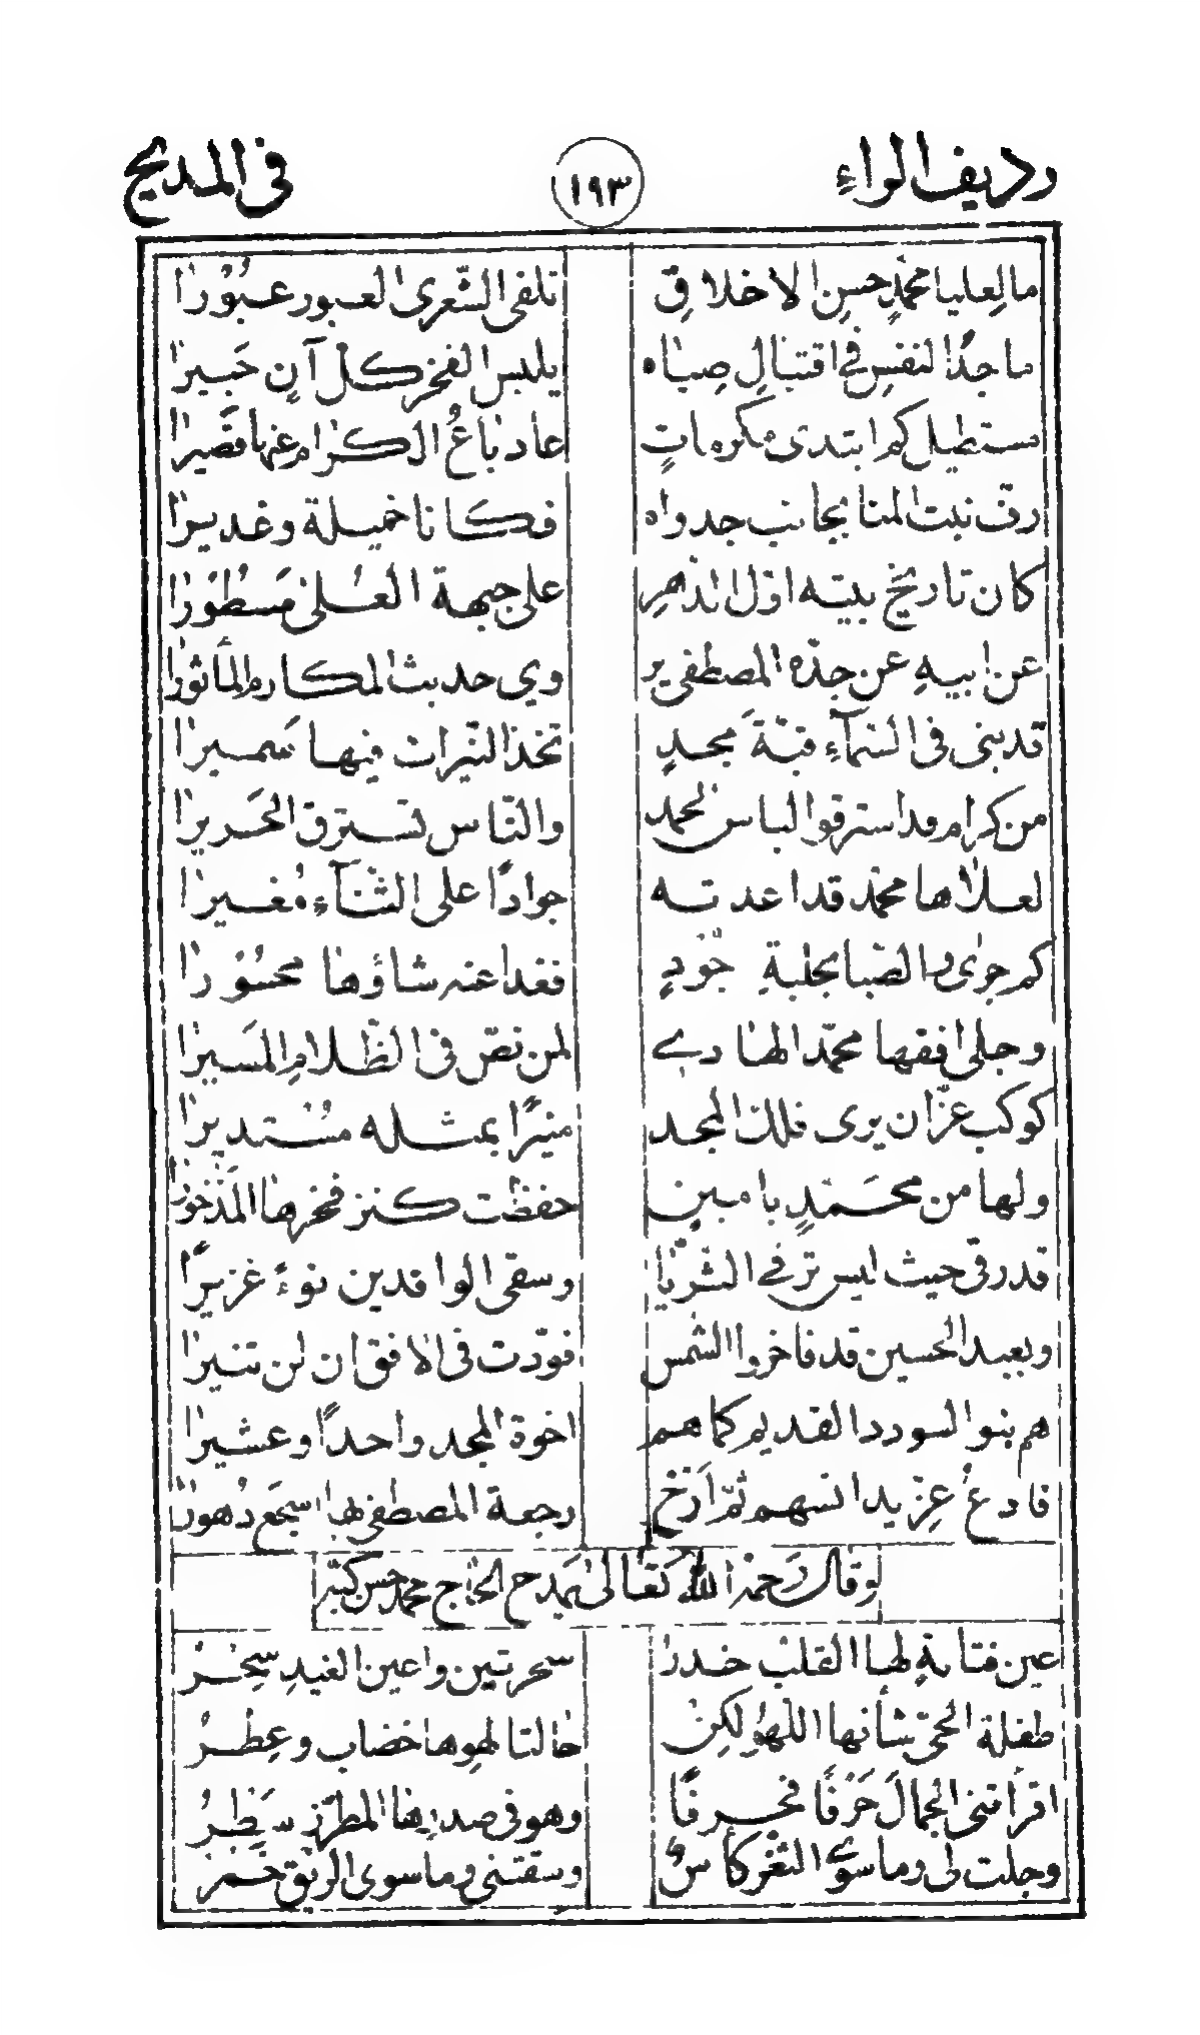 رديف الراء ١٩٣ في المديح
مالعليا محمدٍ حسنِ الاخلاقِ تلفى الشّعرى العبور عبُوْرا
ماجدُ النفسِ في اقتبالِ صِباه يلبس الفخر كل آنٍ حَبيرا
مستطيل كم ابتدى مكرماتٍ عاد باعُ الكرام عنها قصَيرا
رفّ نبت المنا بجانب جدواه فكانا خميلة وغديرا
كان تاريخ بيته اوّل الدّهرِ على جبهة العُلى مَسطُوْرا
عن ابيهِ عن جدّه المصطفى ير وي حديث المكارم المأثورا
قد بنى في السّمآءِ قبّةَ مجدٍ تخذ النّيرات فيها سَميرا
من كرام قد استرقوا لباس الحمد والنّاس تسترق الحَريرا
لعلاها محمّد قد اعدته جوادًا على الثّنآء مُغيرا
كم جرى والصّبا بحلبةِ جُودٍ فغدا عنه شاؤها محسُوْرا
وجلى افقها محمّد الهادي لمن نصّ في الظّلامِ المسَيرا
كوكب عزّ ان يرى فلك المجد منيرًا بمثله مُسْتديرا
ولها من محَمّدٍ با مبين حفظت كنز فخرها المَذخورا
قد رقى حيث ليس ترقى الثّريّا وسقى الوافدين نوءً غزيرًا
وبعبد الحسين قد فاخروا الشمس فودّت في الافق ان لن تنيرا
هم بنوا السودد القديم كما هم اخوة المجد واحدًا وعشيرا
فادع عزّ يد انسهم ثمّ اَرّخ رجعة المصطفى بها ابتجع دهورا
وقال رَحمهُ الله تعَالى يمدح الحَاج محمد حسن كبّه
عين فتانةٍ لها القلب خدرُ سحرتين واعين الغيدِ سِحْرُ
طفلة الحىّ شأنها اللهو لكِن حالتا لهوِها خضاب وعِطرُ
اقرأتني الجمالَ حَرْفًا فحرفًا وهو في صدرها المطرّز سَطرُ
وجلت لى وما سِوى الثغر كأسٌ وسقتني وما سوى الريق خمر